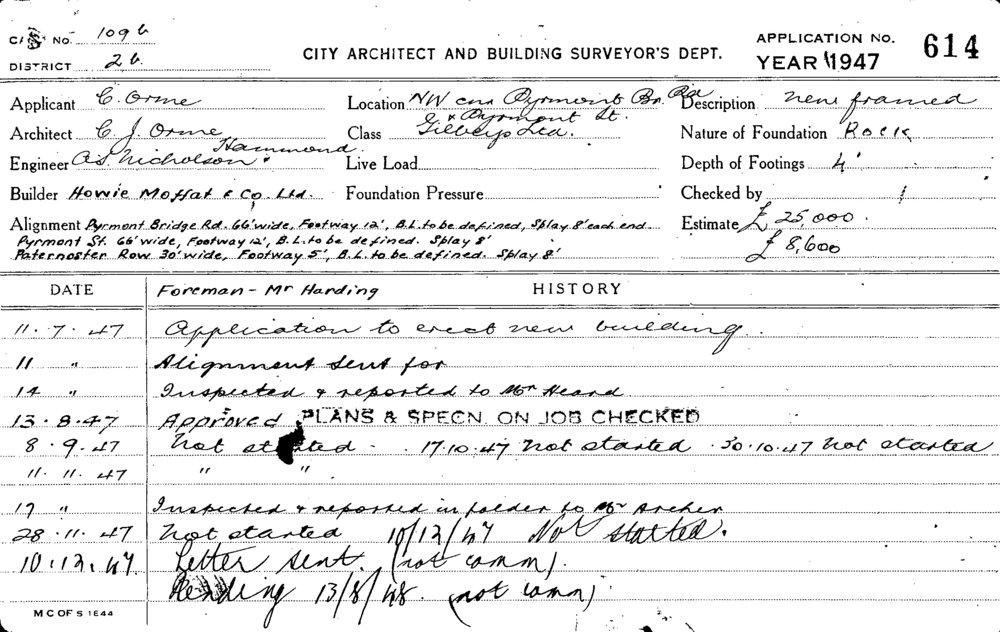 CARD No. 1096
DISTRICT 26.
CITY ARCHITECT AND BUILDING SURVEYOR'S DEPT.
APPLICATION No. 614
YEAR 1947
Applicant C. Orme
Location NW cnr Pyrmont Br. Rd
& Pyrmont St.
Description new framed
Architect C. J. Orme
Class Gilbeys Ltd.
Nature of Foundation Rock
Hammond.
Engineer A.S. Nicholson
Live Load
Depth of Footings 4'
Builder Howie Moffat & Co. Ltd.
Foundation Pressure
Checked by
Alignment Pyrmont Bridge Rd. 66' wide, Footway 12', B.L. to be defined, Splay 8' each end.
Pyrmont St. 66' wide, Footway 12', B.L. to be defined. Splay 8'
Paternoster Row 30' wide, Footway 5', B.L. to be defined. Splay 8'
Estimate £ 25,000.
£ 8,600
DATE Foreman - Mr Harding HISTORY
11.7.47 Application to erect new building.
11 " Alignment sent for
14 " Inspected & reported to Mr Heard
13.8.47 Approved PLANS & SPECN. ON JOB CHECKED
8.9.47 Not started. 17.10.47 Not started. 30.10.47 Not started
11.11.47 " "
17 " Inspected & reported in folder to Mr Archer
28.11.47 Not started 10/12/47 Not started.
10.12.47 Letter sent. (not comm).
Pending 13/8/48. (not comm)
M C OF S 1844